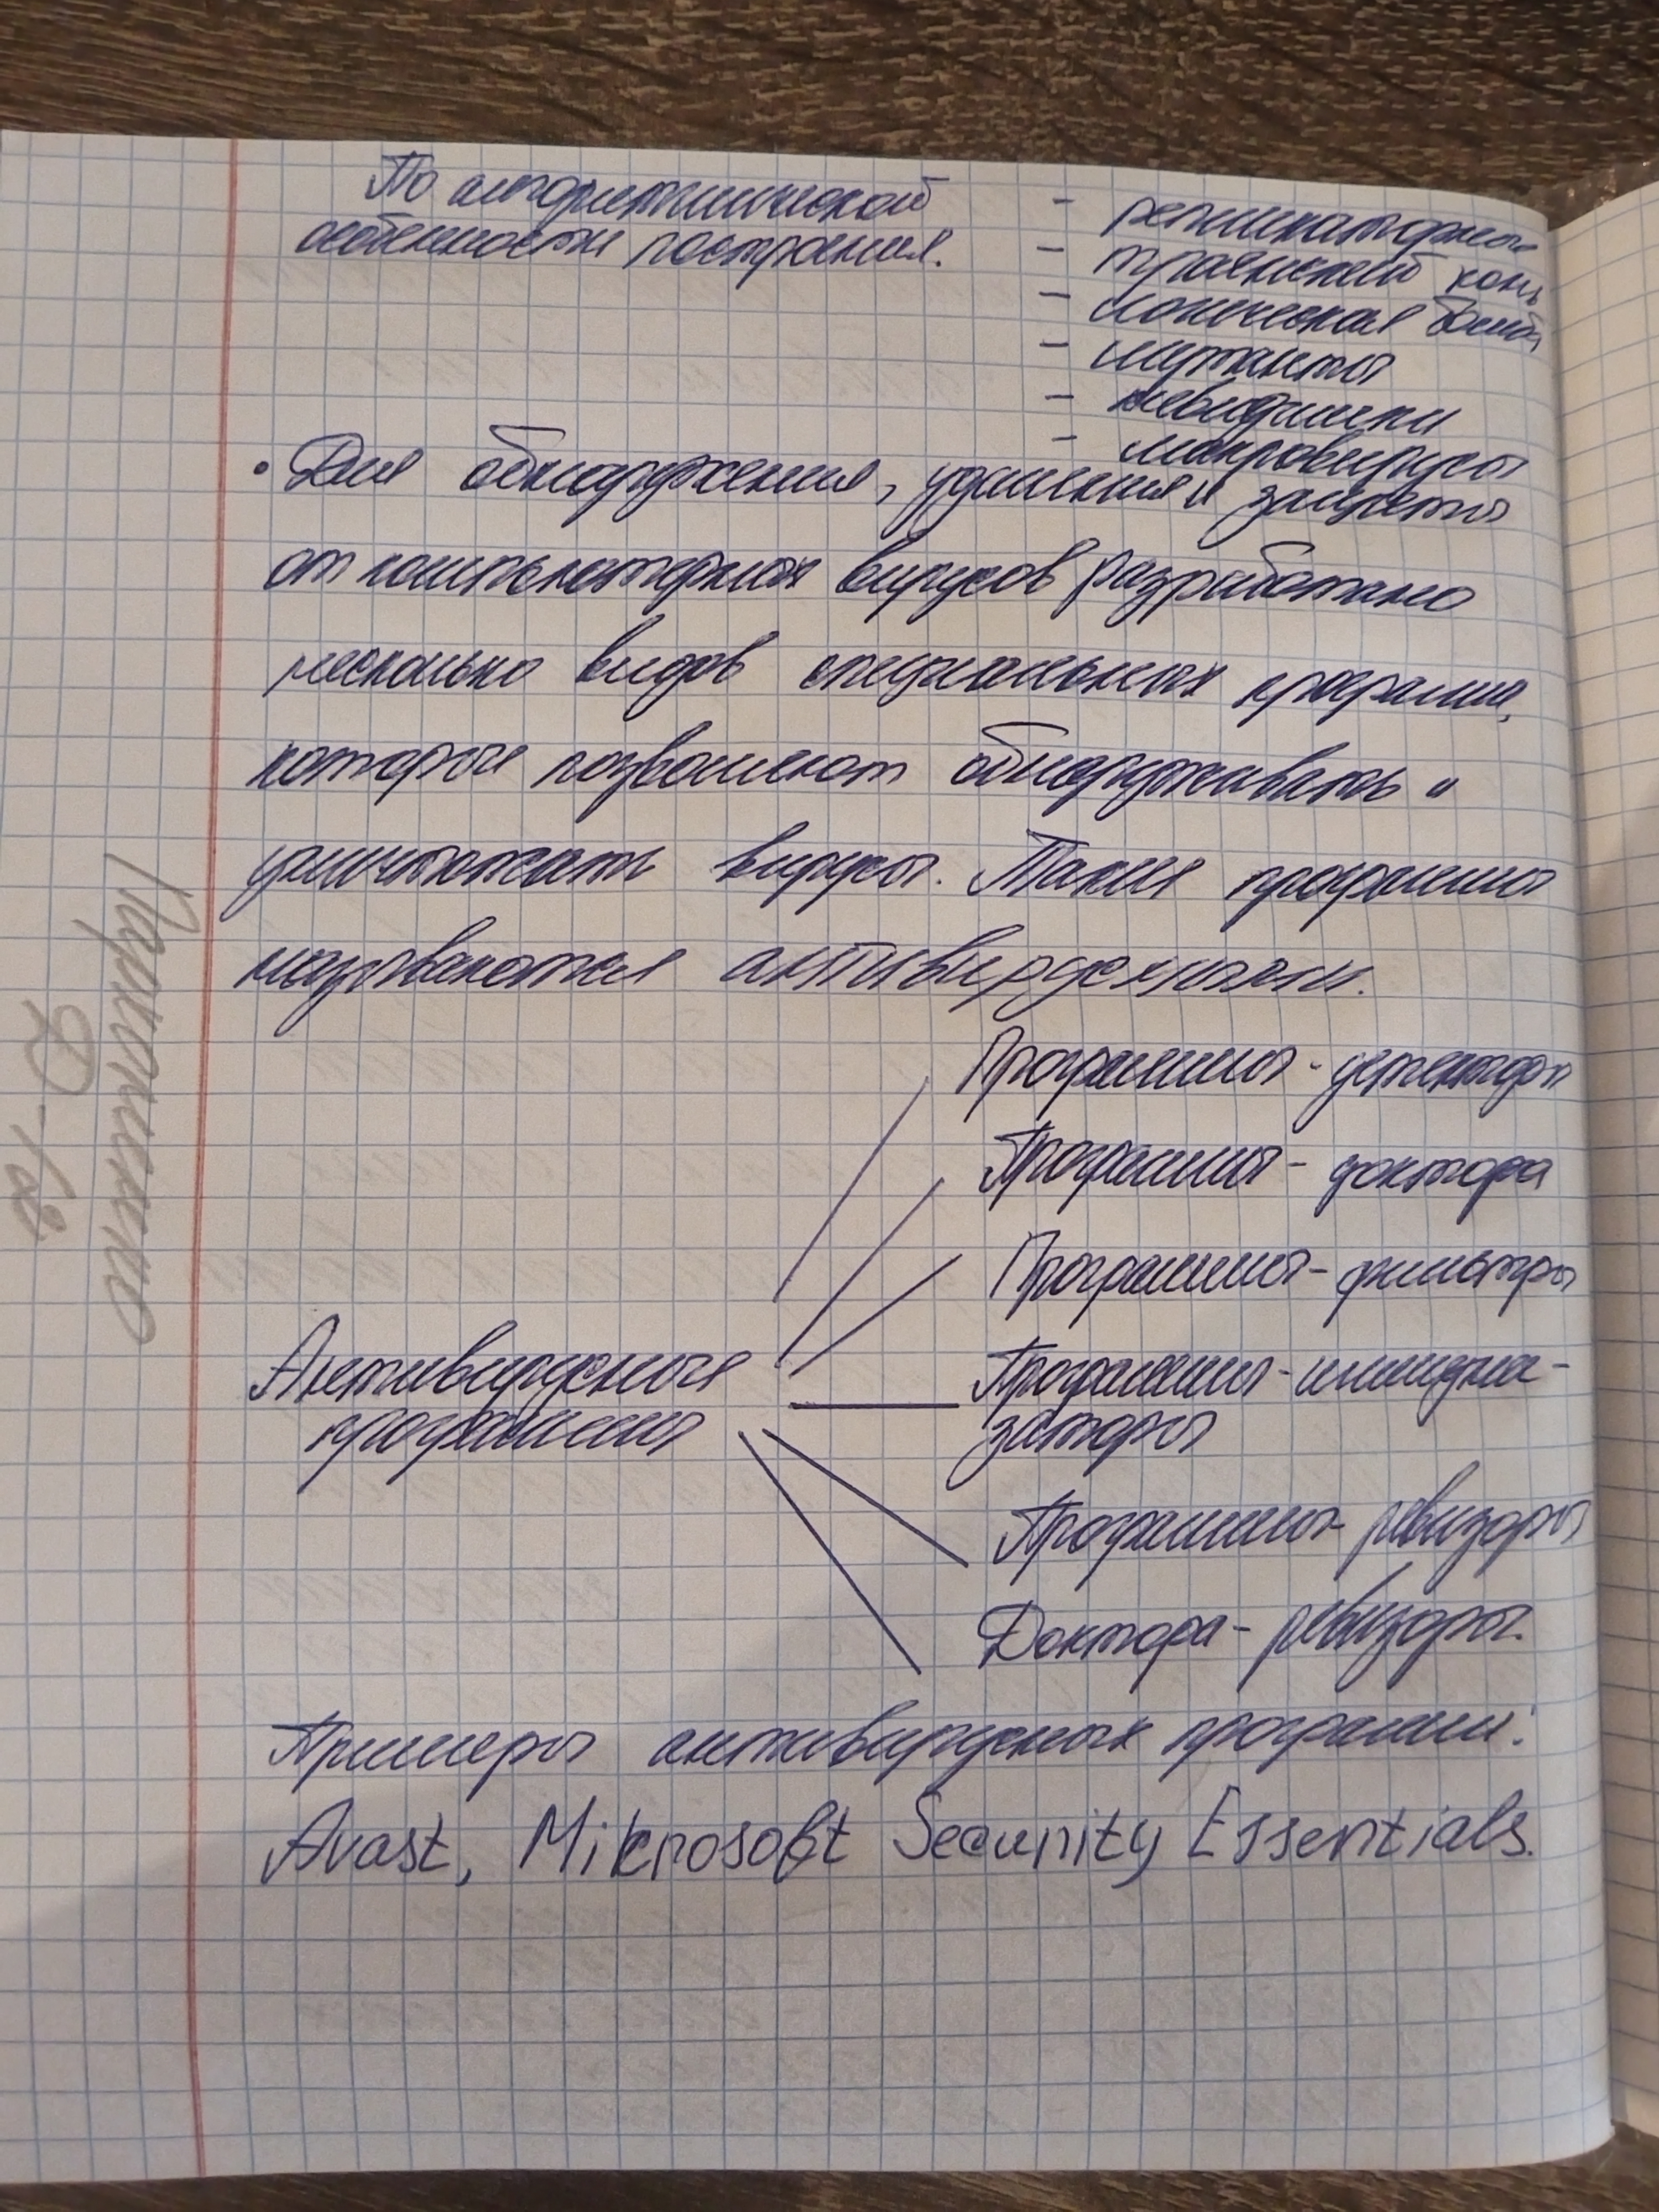 По алгоритмической
особенности построения.
- репликаторные
- троянский конь
- логическая бомба
- мутанты
- невидимки
- макровирусы
• Для обнаружения, удаления и защиты
от компьютерных вирусов разработано
несколько видов специальных программ,
которые позволяют обнаруживать и
уничтожать вирусы. Такие программы
называются антивирусными.
Программы - детекторы
Программы - доктора
Программы - фильтры
Антивирусные
программы
Программы - иммуни-
заторы
Программы - ревизоры
Доктора - ревизоры.
Примеры антивирусных программ:
Avast, Mikrosoft Security Essentials.